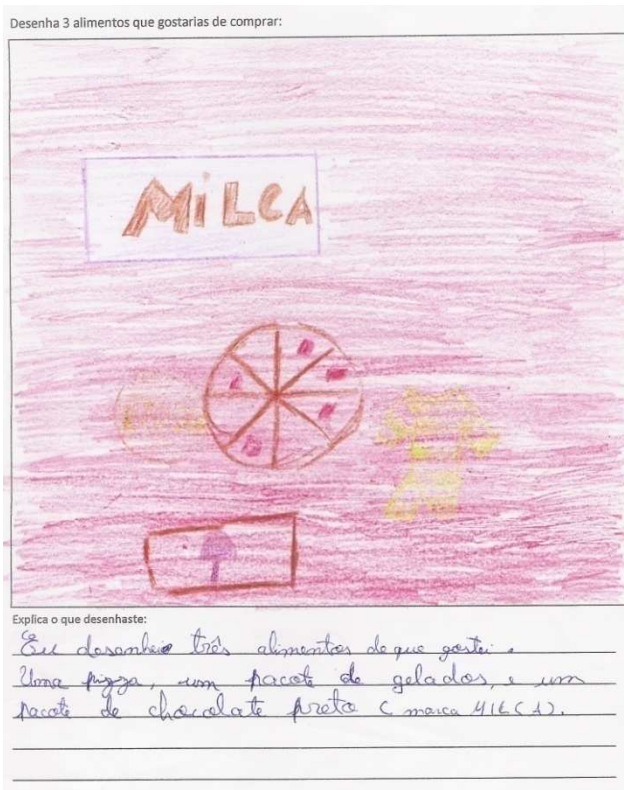 Desenha 3 alimentos que gostarias de comprar:
MiLCA
Explica o que desenhaste:
Eu desenhei três alimentos de que gostei.
Uma pizza, um pacote de gelados, e um
pacote de chocolate preto (marca MILCA).